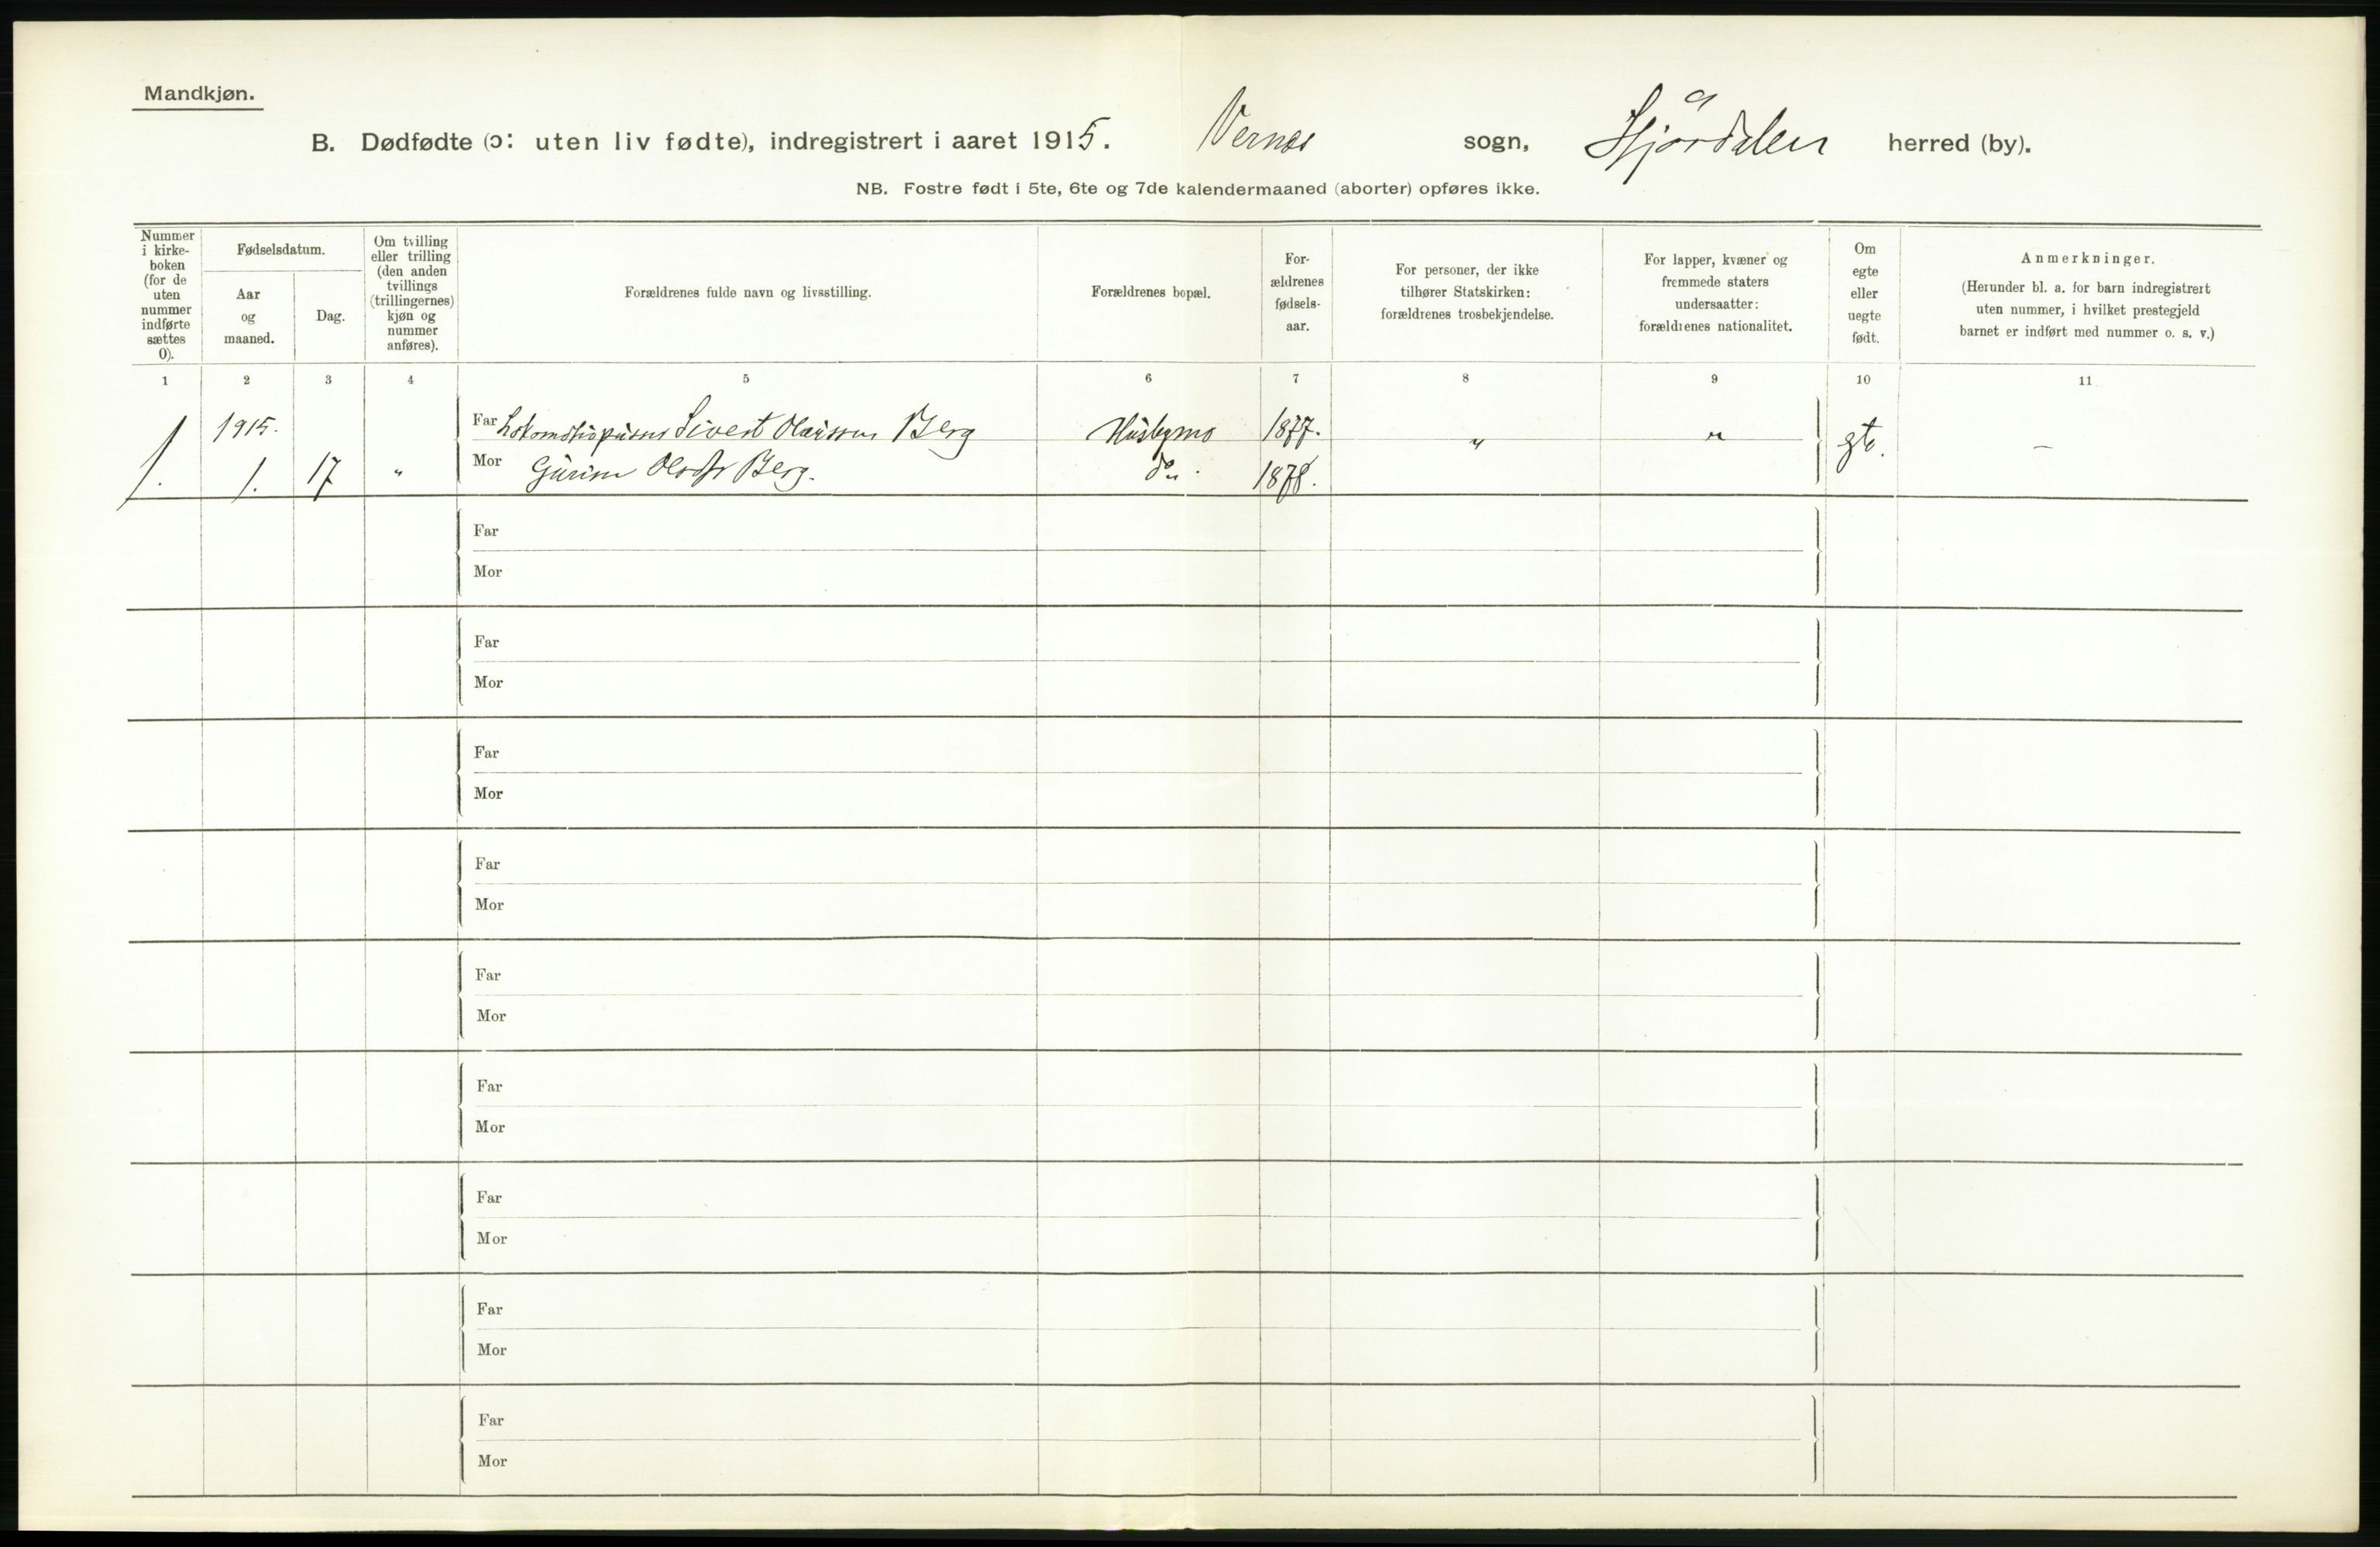 Mandkjøn.
B. Dødfødte (ɔ: uten liv fødte), indregistrert i aaret 1915. Vernes sogn, Stjørdalen herred (by).
NB. Fostre født i 5te, 6te og 7de kalendermaaned (aborter) opføres ikke.
Nummer
i kirke-
boken
(for de
uten
nummer
indførte
sættes
0).
Fødselsdatum.
Aar
og
maaned.
Dag.
Om tvilling
eller trilling
(den anden
tvillings
(trillingernes)
kjøn og
nummer
anføres).
Forældrenes fulde navn og livsstilling.
Forældrenes bopæl.
For-
ældrenes
fødsels-
aar.
For personer, der ikke
tilhører Statskirken:
forældrenes trosbekjendelse.
For lapper, kvæner og
fremmede staters
undersaatter:
forældrenes nationalitet.
Om
egte
eller
uegte
født.
Anmerkninger.
(Herunder bl. a. for barn indregistrert
uten nummer, i hvilket prestegjeld
barnet er indført med nummer o. s. v.)
1 2 3 4 5 6 7 8 9 10 11
1915. Far Sivert Olaussen Berg Husbymo 1877. " " gte. –
1. 1. 17 " Mor Berg. do. 1878.
Far
Mor
Far
Mor
Far
Mor
Far
Mor
Far
Mor
Far
Mor
Far
Mor
Far
Mor
Far
Mor